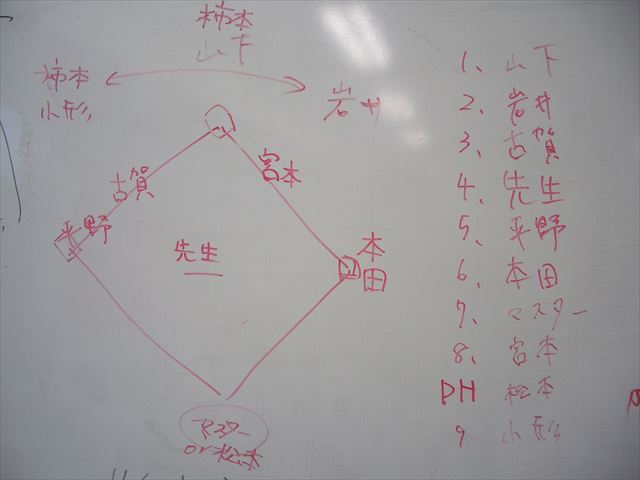 柿本
山下
柿本
小形
岩井
古賀
宮本
平野
先生
本田
マスター
or 松本
1、山下
2、岩井
3、古賀
4、先生
5、平野
6、本田
7、マスター
8、宮本
DH 松本
9 小形